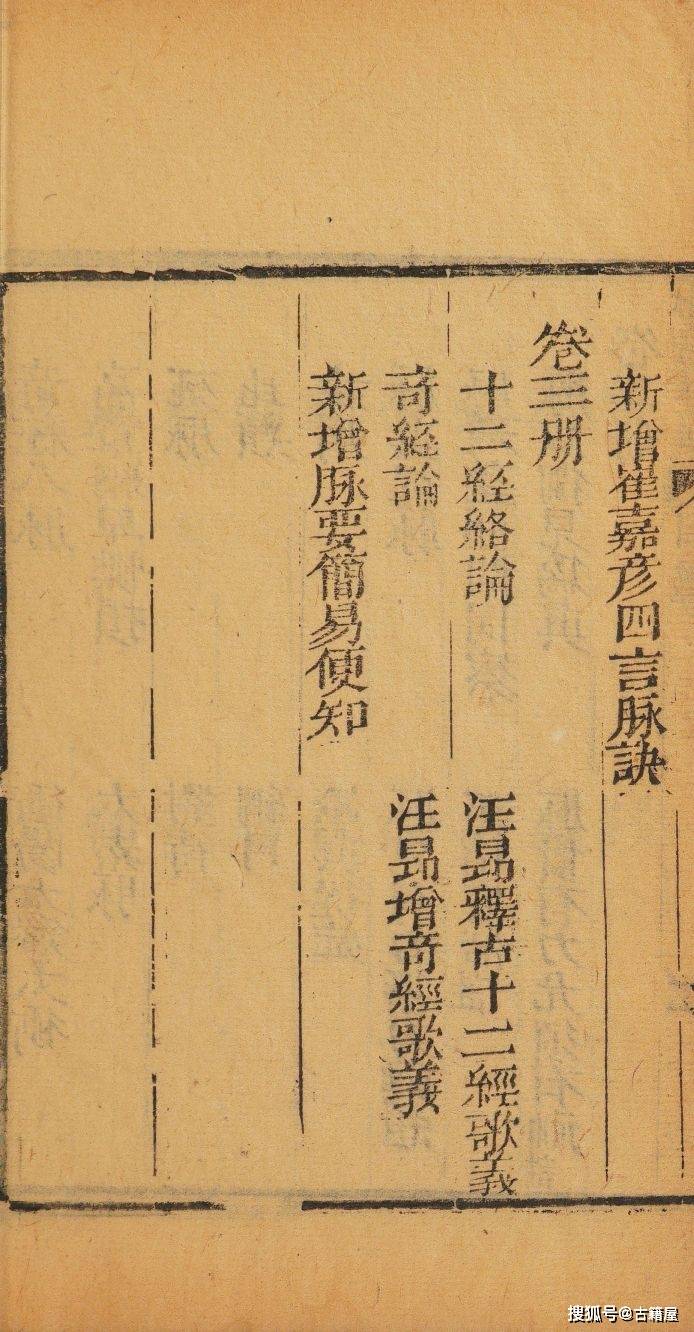 新增崔嘉彦四言脉訣
卷三册
十二経絡論 汪昻釋古十二經歌義
奇経論 汪昻增奇經歌義
新增脉要簡易便知
搜狐号@古籍屋